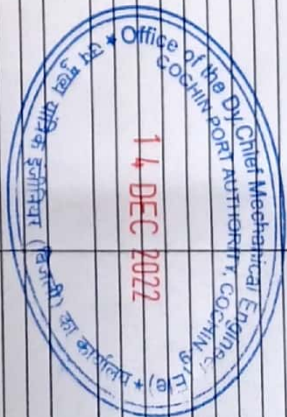 Office of the Dy Chief Mechanical Engineer (Ele)
COCHIN PORT AUTHORITY, COCHIN-9
14 DEC 2022
उप मुख्य यांत्रिक इंजीनियर (बिजली) का कार्यालय